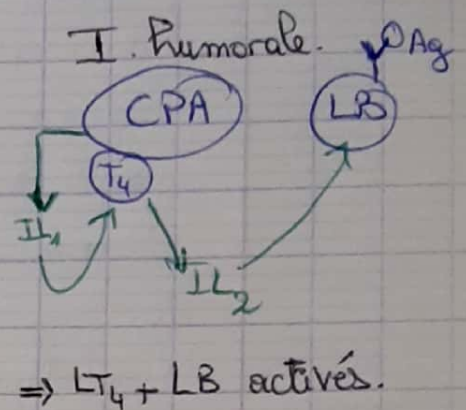 I. humorale.
Ag
CPA
LB
T₄
IL₁
IL₂
=> LT₄ + LB activés.